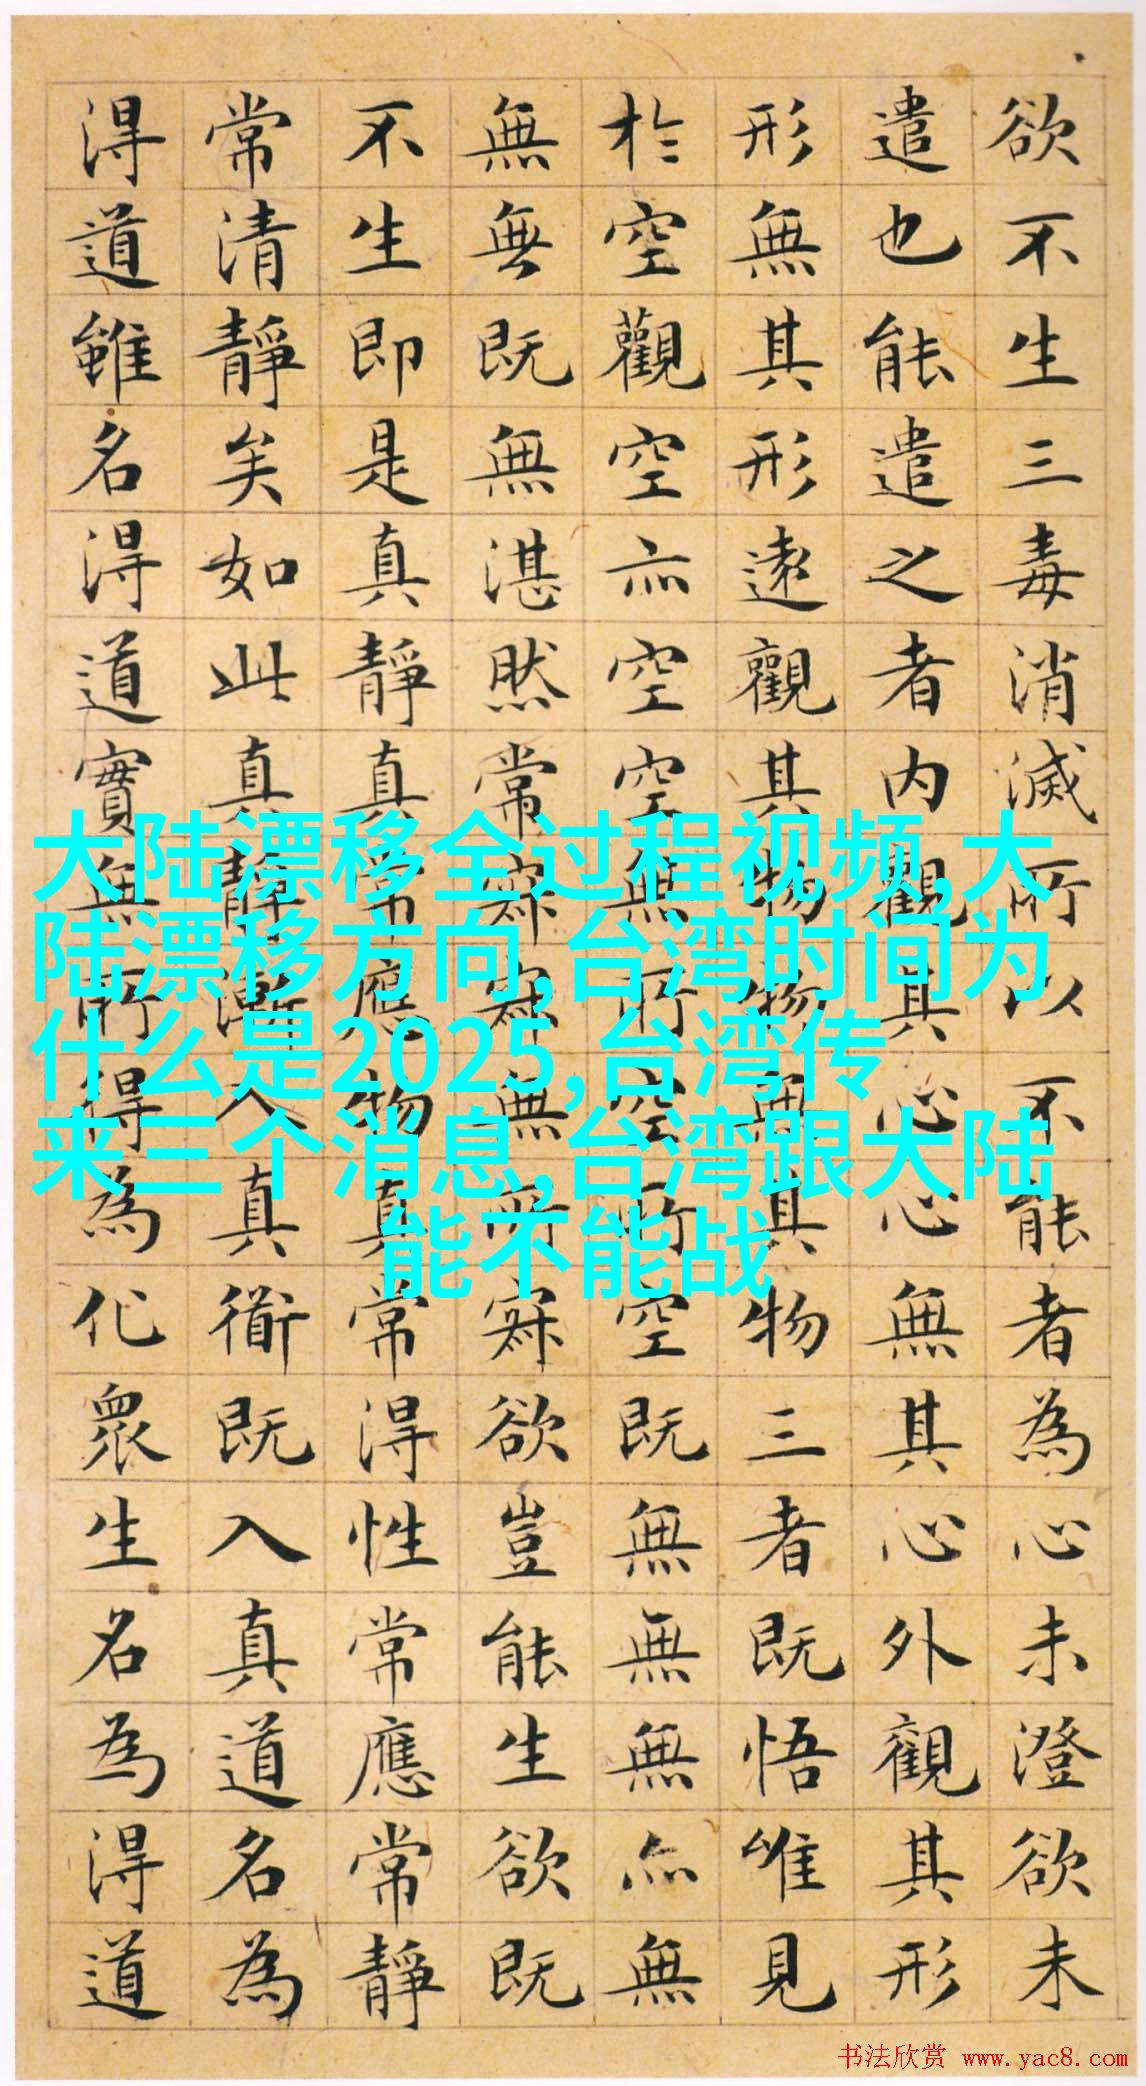 欲不生三毒消滅所以不能者為心未澄欲未
遣也能遣之者内觀其心心無其心外觀其形
形無其形遠觀其物物無其物三者既悟唯見
於空觀空亦空空無所空所空既無無無亦無
無無既無湛然常寂寂無所寂欲豈能生欲既
不生即是真靜真常應物真常得性常應常靜
常清靜矣如此真靜漸入真衜既入真道名為
得道雖名得道實無所得為化眾生名為得道
大陆漂移全过程视频,大
陆漂移方向,台湾时间为
什么是2025,台湾传
来三个消息,台湾跟大陆
能不能战
书法欣赏 www.yac8.com